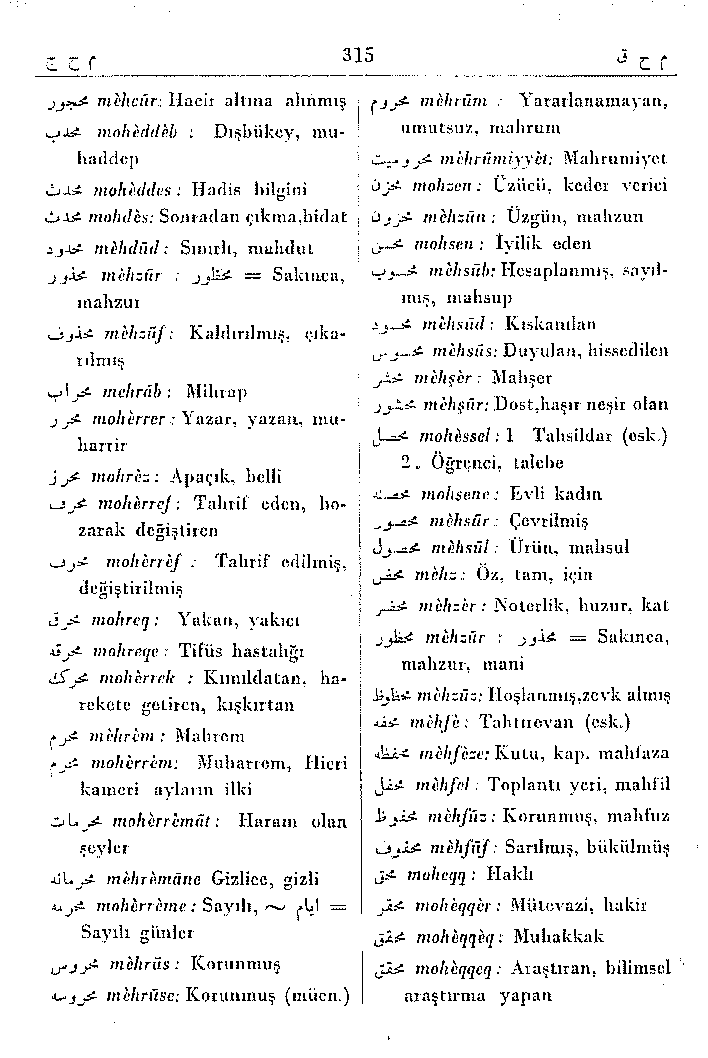 م ح ج 315 م ح ق
محجور mèhcûr: Hacir altına alınmış
محدب mohèddèb : Dışbükey, mu-
haddep
محدث mohèddes : Hadis bilgini
محدث mohdès: Sonradan çıkma,bidat
محدود mèhdûd : Sınırlı, mahdut
محذور mèhzûr : محظور = Sakınca,
mahzur
محذوف mèhzûf : Kaldırılmış, çıka-
rılmış
محراب mehrâb : Mihrap
محرر mohèrrer : Yazar, yazan, mu-
harrir
محرز mohrèz : Apaçık, belli
محرف mohèrref : Tahrif eden, bo-
zarak değiştiren
محرف mohèrrèf : Tahrif edilmiş,
değiştirilmiş
محرق mohreq : Yakan, yakıcı
محرقه mohreqe : Tifüs hastalığı
محرك mohèrrek : Kımıldatan, ha-
rekete getiren, kışkırtan
محرم mèhrèm : Mahrem
محرم mohèrrèm: Muharrem, Hicri
kameri ayların ilki
محرمات mohèrrèmât : Haram olan
şeyler
محرمانه mèhrèmâne Gizlice, gizli
محرمه mohèrrème : Sayılı, ~ ايام =
Sayılı günler
محروس mèhrûs : Korunmuş
محروسه mèhrûse: Korunmuş (müen.)
محروم mèhrûm : Yararlanamayan,
umutsuz, mahrum
محروميت mèhrûmiyyèt: Mahrumiyet
محزن mohzen : Üzücü, keder verici
محزون mèhzûn : Üzgün, mahzun
محسن mohsen : İyilik eden
محسوب mèhsûb: Hesaplanmış, sayıl-
mış, mahsup
محسود mèhsûd : Kıskanılan
محسوس mèhsûs: Duyulan, hissedilen
محشر mèhşèr : Mahşer
محشور mèhşûr: Dost,haşır neşir olan
محصل mohèssel : 1 Tahsildar (esk.)
2. Öğrenci, talebe
محصنه mohsene : Evli kadın
محصور mèhsûr : Çevrilmiş
محصول mèhsûl : Ürün, mahsul
محض mèhz : Öz, tam, için
محضر mèhzèr : Noterlik, huzur, kat
محظور mèhzûr : محذور = Sakınca,
mahzur, mani
محظوظ mèhzûz: Hoşlanmış,zevk almış
محفه mèhfè : Tahtırevan (esk.)
محفظه mèhfèze: Kutu, kap, mahfaza
محفل mèhfel : Toplantı yeri, mahfil
محفوظ mèhfûz : Korunmuş, mahfuz
محفوف mèhfûf : Sarılmış, bükülmüş
محق moheqq : Haklı
محقر mohèqqèr : Mütevazi, hakir
محقق mohèqqèq : Muhakkak
محقق mohèqqeq : Araştıran, bilimsel
araştırma yapan